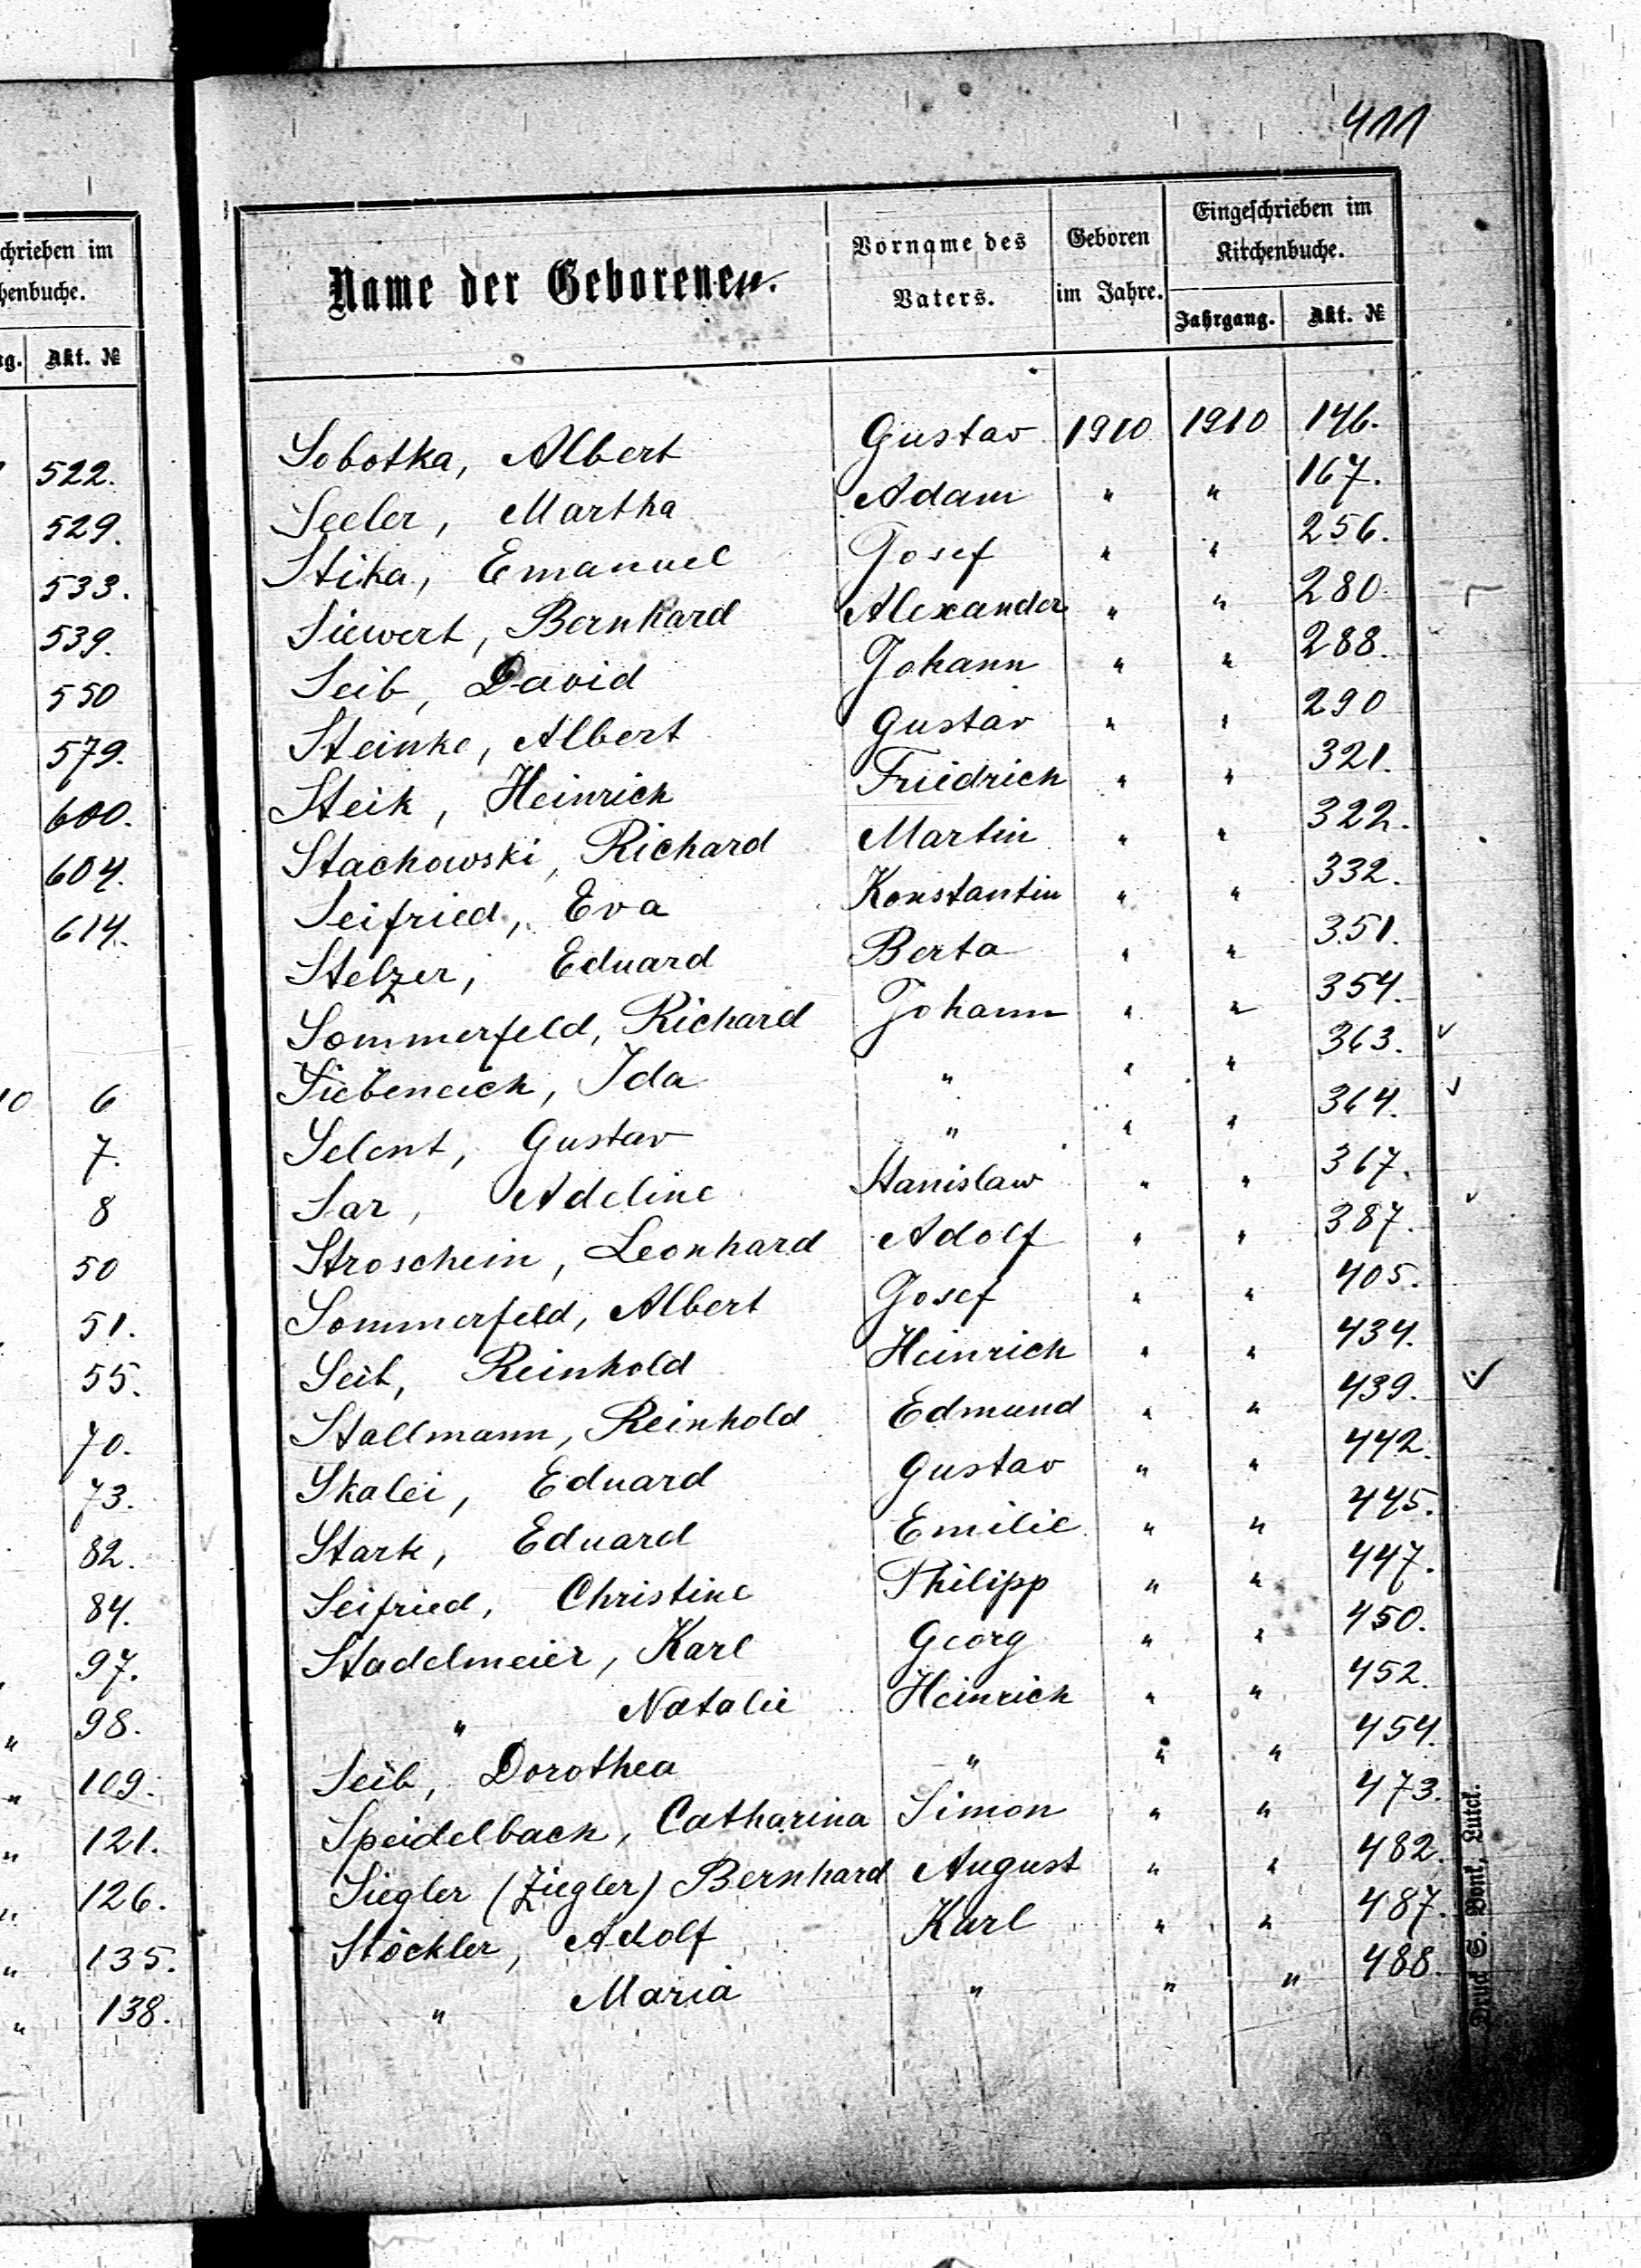 411
chrieben im
henbuche.
g. Akt. №
522.
529.
533.
539.
550
579.
600.
604.
614.
10 6
7.
8
50
51.
55.
70.
73.
82.
84.
97.
" 98.
" 109.
" 121.
" 126.
" 135.
" 138.
Name der Geborenen. Vorname des Vaters. Geboren im Jahre. Eingeschrieben im Kirchenbuche.
Jahrgang. Akt. №
Sobotka, Albert Gustav 1910 1910 146.
Seeler, Martha Adam " " 167.
Stika, Emanuel Josef " " 256.
Siewert, Bernhard Alexander " " 280
Seib, David Johann " " 288.
Steinke, Albert Gustav " " 290
Steik, Heinrich Friedrich " " 321.
Stachowski, Richard Martin " " 322.
Seifried, Eva Konstantin " " 332.
Stelzer, Eduard Berta " " 351.
Sommerfeld, Richard Johann " " 354.
Siebeneich, Ida " " " 363.
Selent, Gustav " " " 364.
Sar, Adeline Stanislaw " " 367.
Stroschein, Leonhard Adolf " " 387.
Sommerfeld, Albert Josef " " 405.
Seib, Reinhold Heinrich " " 434.
Stallmann, Reinhold Edmund " " 439.
Skalei, Eduard Gustav " " 442.
Stark, Eduard Emilie " " 445.
Seifried, Christine Philipp " " 447.
Stadelmeier, Karl Georg " " 450.
" Natalie Heinrich " " 452.
Seib, Dorothea " " " 454.
Speidelbach, Catharina Simon " " 473.
Siegler (Ziegler) Bernhard August " " 482.
Stöckler, Adolf Karl " " 487.
" Maria " " " 488.
Druck S. Bonk, Lutck.